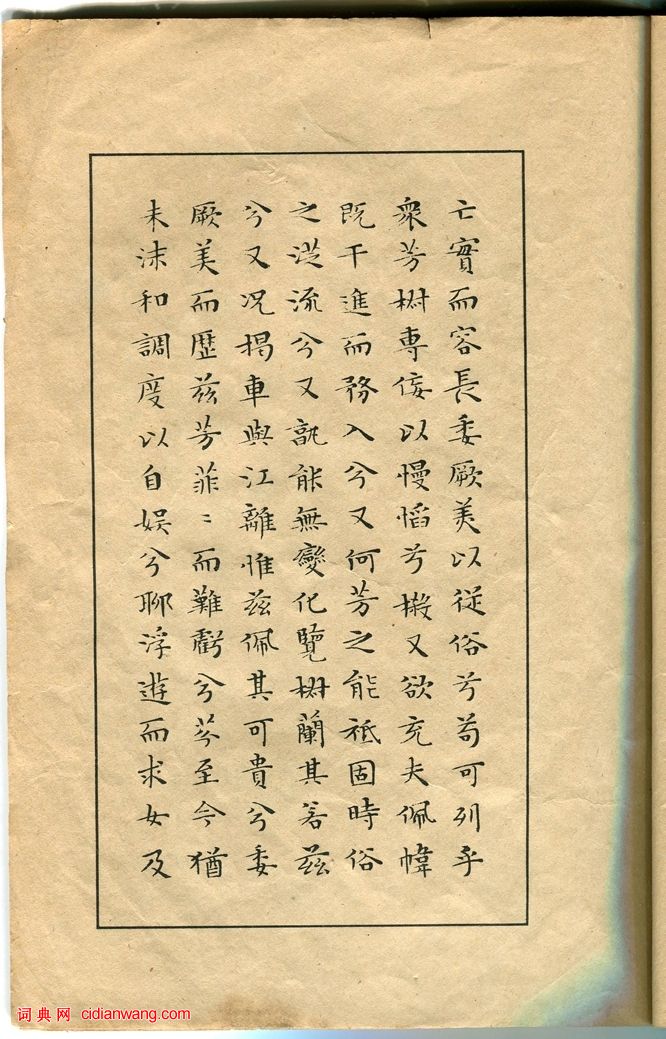 亡實而容長委厥美以從俗兮苟可列乎
衆芳樹專佞以慢慆兮樧又欲充夫佩幃
既干進而務入兮又何芳之能祗固時俗
之從流兮又孰能無變化覽樹蘭其若茲
兮又況揭車與江離惟茲佩其可貴兮委
厥美而歷茲芳菲〻而難虧兮芬至今猶
未沬和調度以自娛兮聊浮遊而求女及
词典网 cidianwang.com